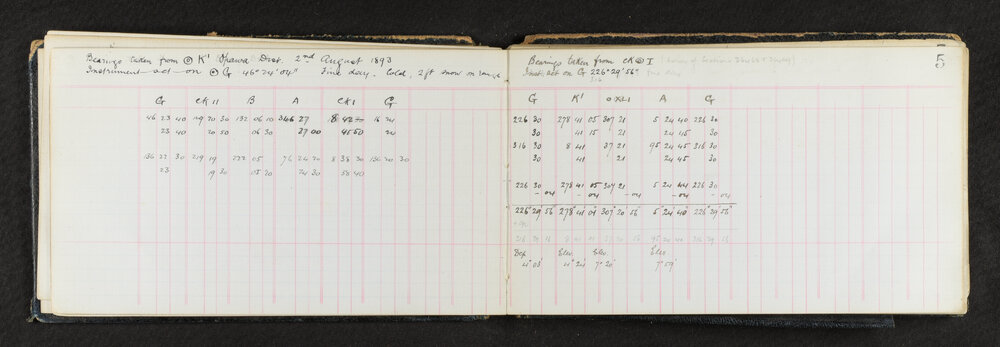 Bearings taken from ⊙ K' Opawa Dist. 2nd August 1893
Instrument set on ⊙ G 46° 24' 04" Fine day. Cold, 2ft snow on range
G CK II B A CK I G
46 23 40 119 20 30 132 06 10 346 27
23 40 20 50 06 30 27 00 41 50
136 22 30 219 19 222 05 76 24 20 8 38 30 136 20 30
23 19 30 05 20 24 30 58 40
5
Bearings taken from CK ⊙ I
Inst. set on G 226° 29' 56"
G K' ⊙XLI A G
226 30 278 41 05 307 21 5 24 40 226 30
30 41 15 21 24 45 30
316 30 8 41 37 21 95 24 45 316 30
30 41 21 24 45 30
226 30 278 41 05 307 21 5 24 44 226 30
- 04 - 04 - 04 - 04 - 04
226° 29' 56" 278° 41' 01" 307° 20' 56" 5° 24' 40" 226° 29' 56"
Dep Elev. Elev. Elev
4° 03' 4° 24' 7° 20' 7° 59'